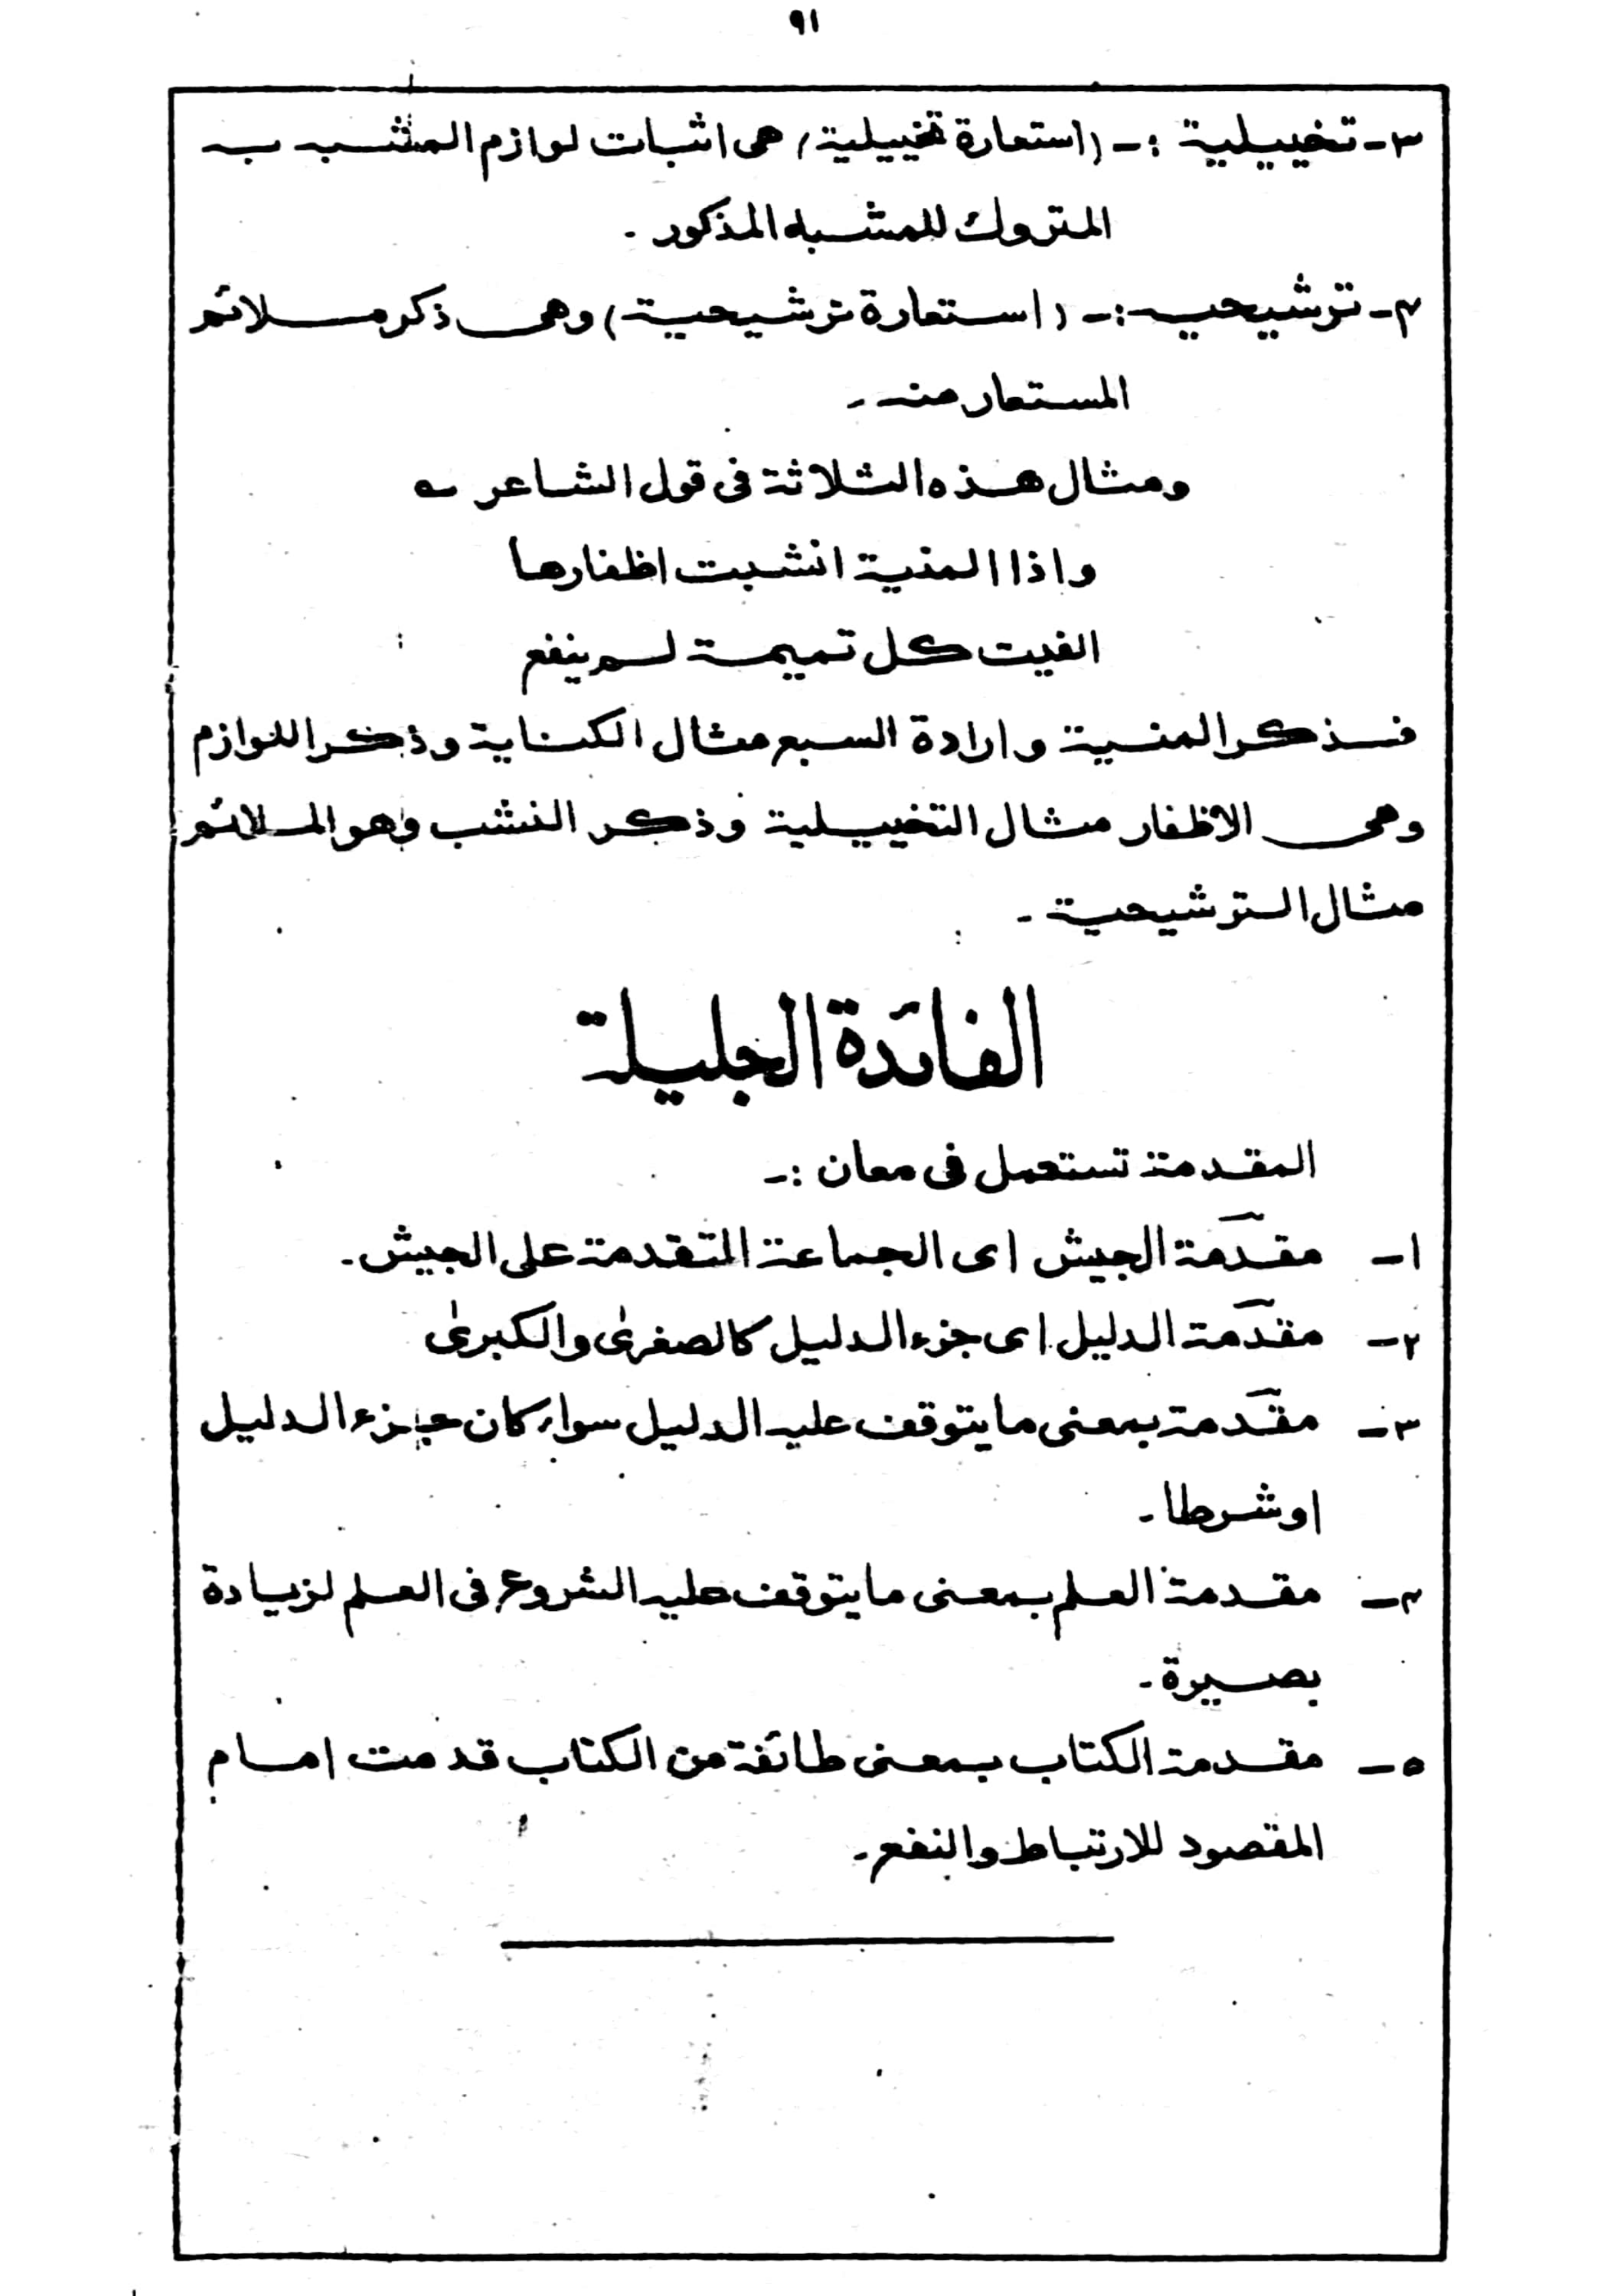 ٩١
٣ـ تخييلية :ـ (استعارة تخييلية) هى اثبات لوازم المشبه به
المتروك للمشبه المذكور ـ
٤ـ ترشيحيه :ـ (استعارة ترشيحية) وهى ذكر ملائم
المستعار منه ـ
ومثال هذه الثلاثة فى قول الشاعر ؎
واذا المنية انشبت اظفارها
الفيت كل تميمة لم ينفع
فذكر المنية وارادة السبع مثال الكناية وذكر اللوازم
وهى الاظفار مثال التخييلية وذكر النشب وهو الملائم
مثال الترشيحية ـ
الفائدة الجليلة
المقدمة تستعمل فى معان :ـ
١ـ مقدَّمة الجيش اى الجماعة المتقدمة على الجيش ـ
٢ـ مقدَّمة الدليل اى جزء الدليل كالصغرىٰ والكبرىٰ
٣ـ مقدَّمة بمعنى ما يتوقف عليه الدليل سواء كان جزء الدليل
او شرطا ـ
٤ـ مقدمة العلم بمعنى ما يتوقف عليه الشروع فى العلم لزيادة
بصيرة ـ
٥ـ مقدمة الكتاب بمعنى طائفة من الكتاب قدمت امام
المقصود للارتباط والنفع ـ